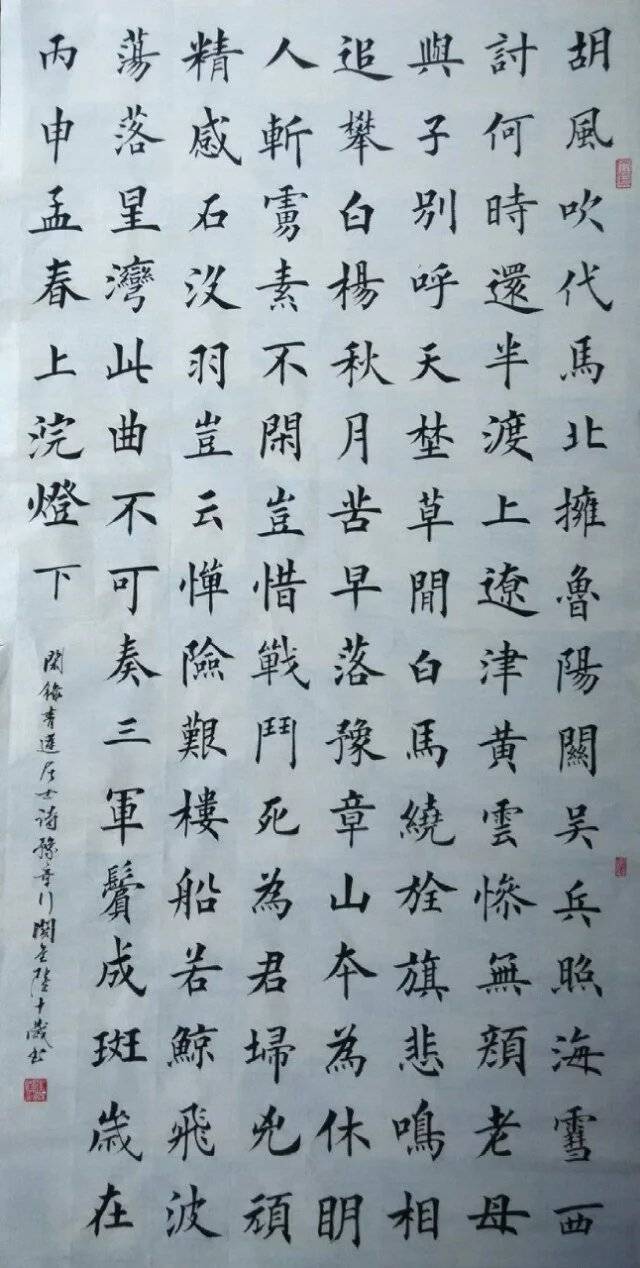 胡風吹代馬北擁魯陽關吳兵照海雪西
討何時還半渡上遼津黃雲慘無顏老母
與子別呼天埜草閒白馬繞旌旗悲鳴相
追攀白楊秋月苦早落豫章山本為休明
人斬虜素不閑豈惜戰鬥死為君埽兇頑
精感石沒羽豈云憚險艱樓船若鯨飛波
蕩落星灣此曲不可奏三軍鬢成斑歲在
丙申孟春上浣燈下
錄青蓮居士詩豫章行陸十歲書